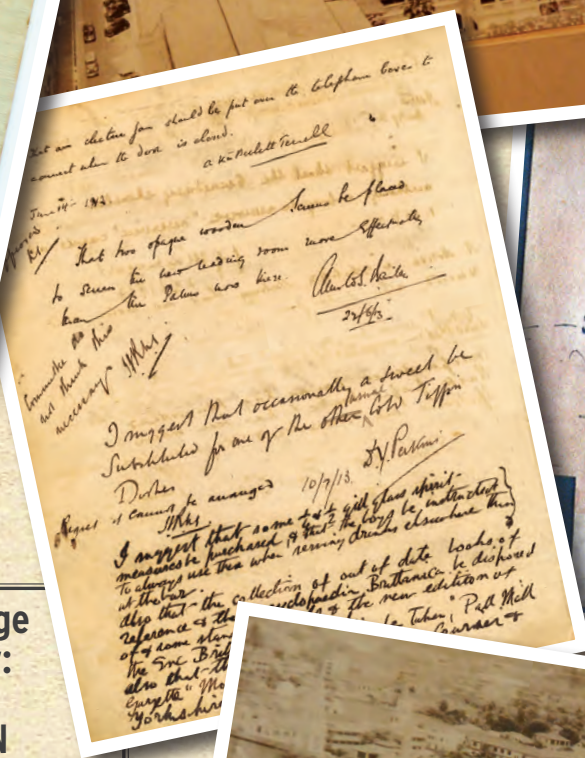 that an electric fan should be put over the telephone boxes to
connect when the door is closed.
June 14th 1913
That two opaque wooden Screens be placed
to screen the new reading room more effectually
than the Palms now there.
23/6/13.
Committee do
not think this
necessary
I suggest that occasionally a sweet be
Substituted for one of the other usual Cold Tiffin
Dishes
D.Y. Perkins
10/7/13.
Regret it cannot be arranged
I suggest that some & gill glass spirit-
measures be purchased & that the boys be instructed
to always use them when serving drinks elsewhere than
at the bar.
Also that the collection of out of date books of
reference & the Encyclopaedia Brittanica be disposed
of & some of the new edition of
the Enc Brit
also that the be taken, "Pall Mall
Gazette"
Yorkshire
ge
:
N